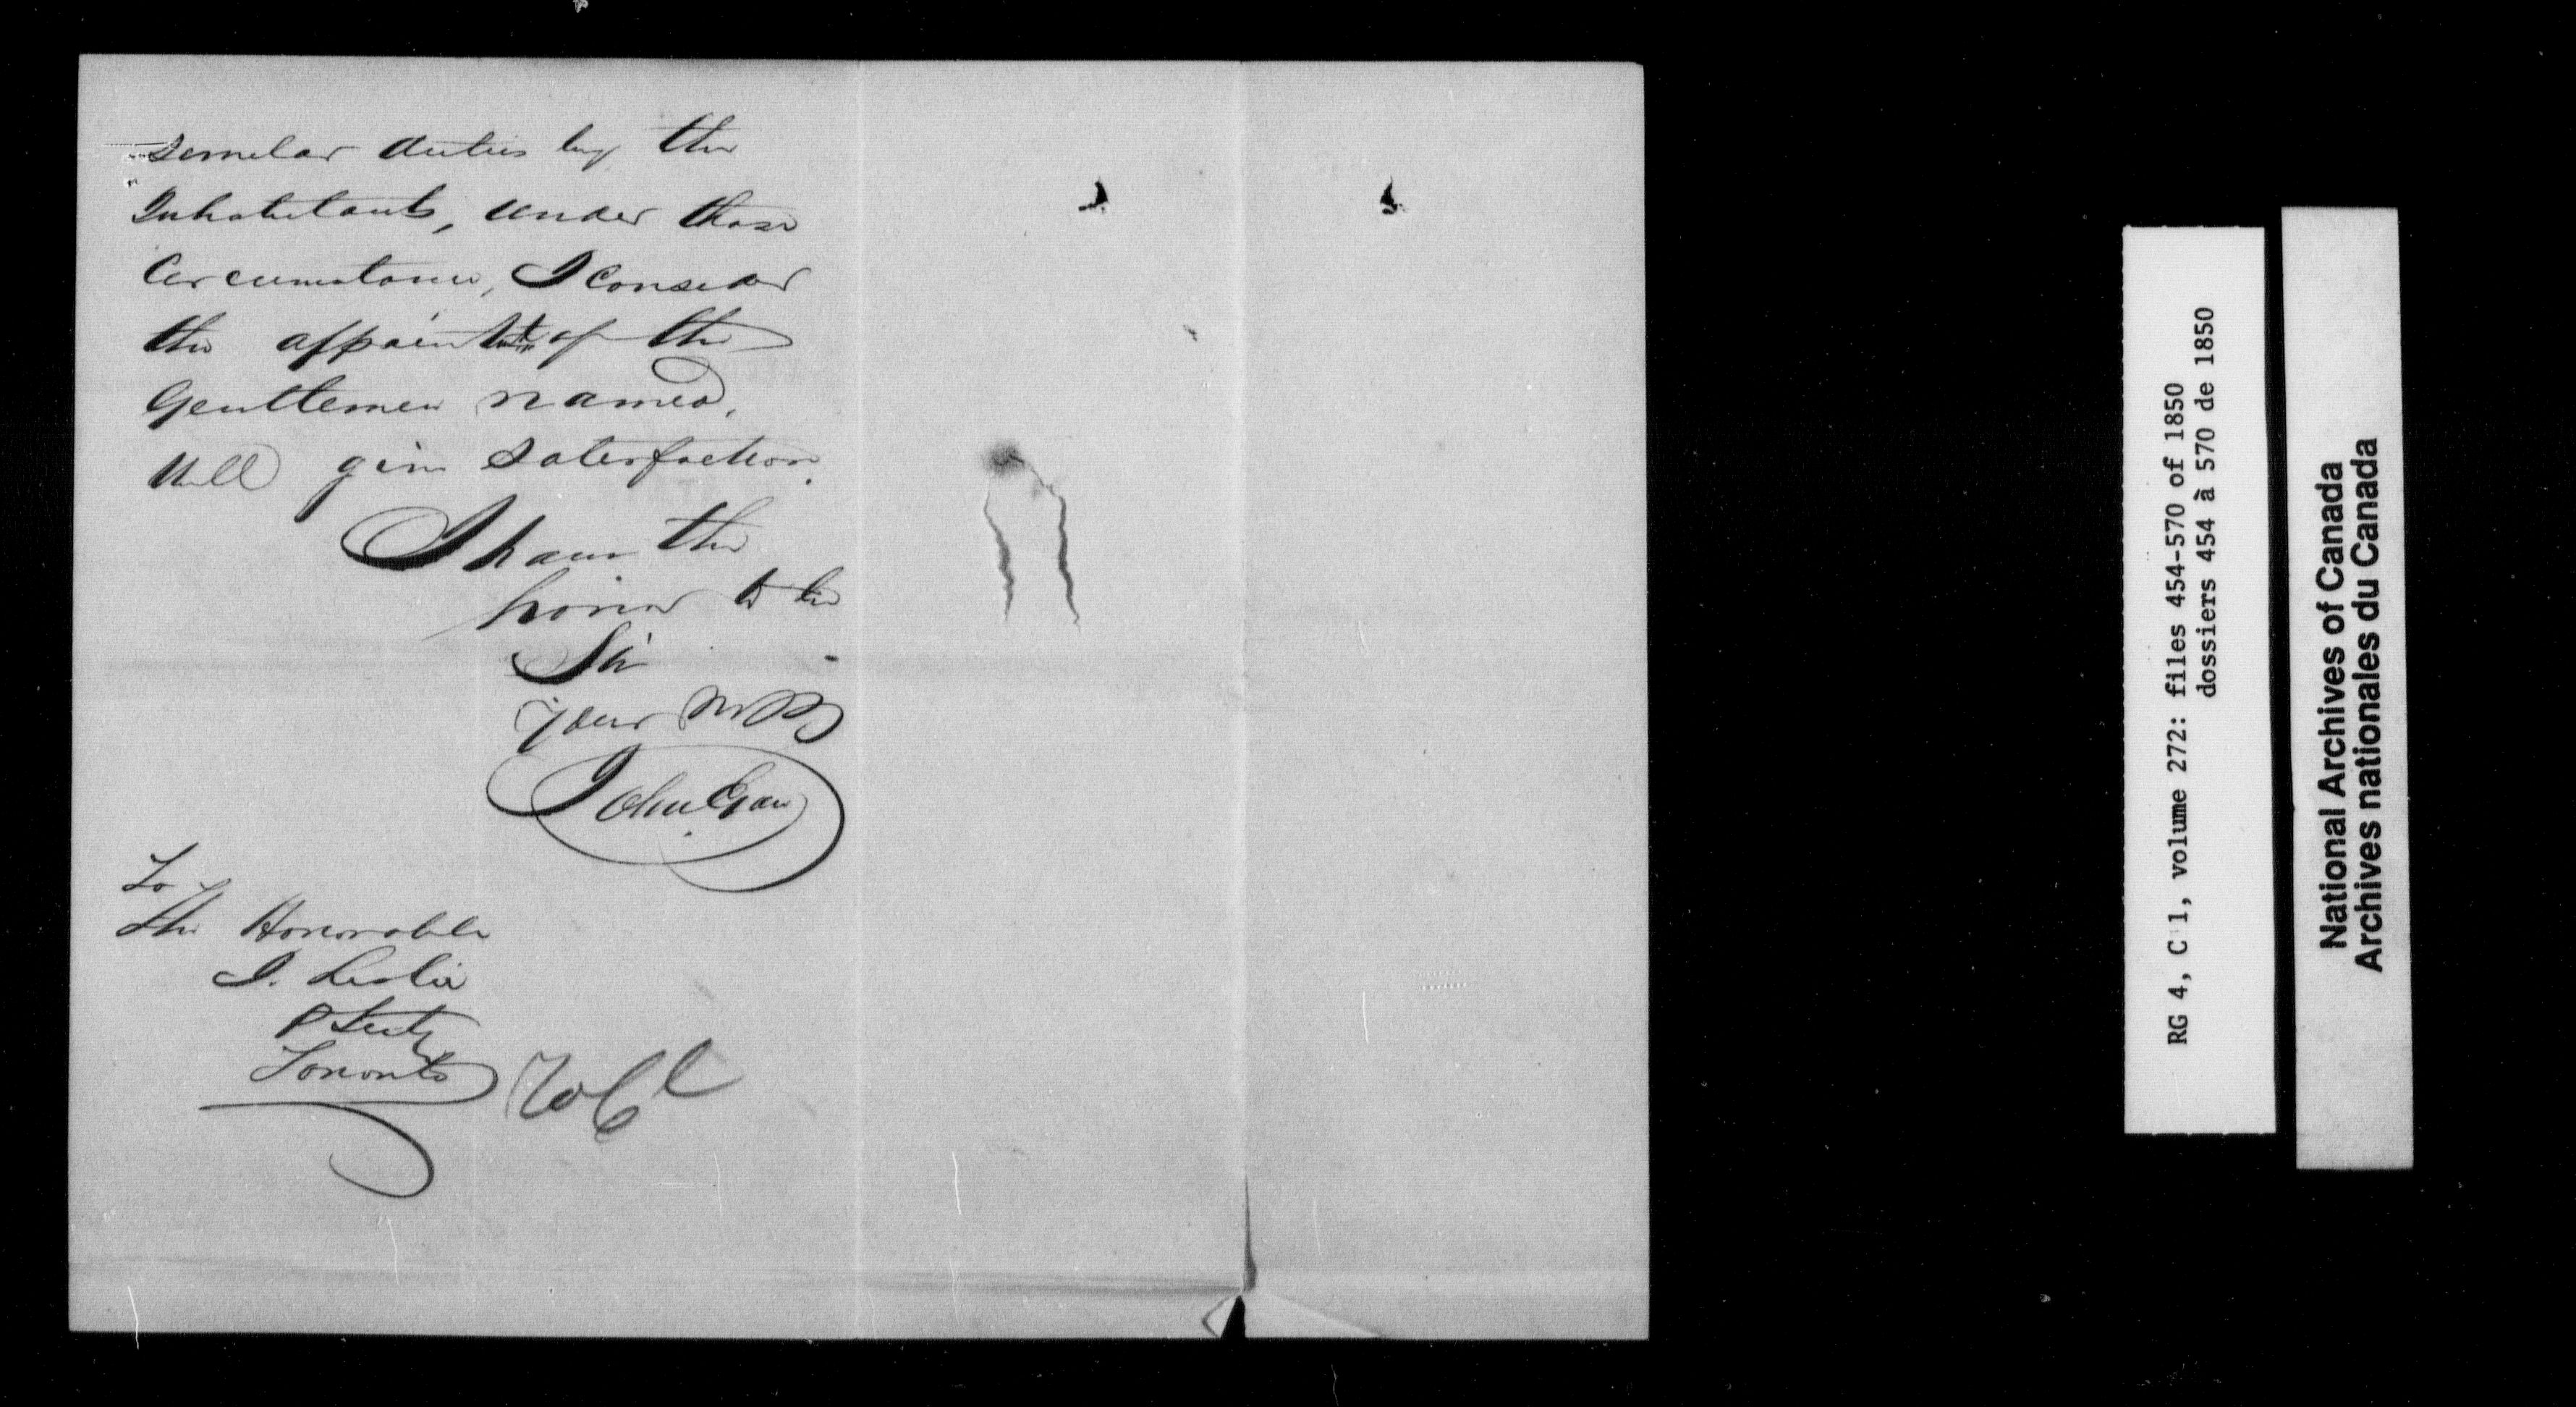 similar duties by the
Inhabitants, under those
Circumstances, I Consider
the appointt of the
Gentlemen named,
Will give satisfaction.
I have the
honor to be
Sir
your
John Egan
To
The Honorable
J. Leslie
P Secty
Toronto
RG 4, C 1, volume 272: files 454-570 of 1850
dossiers 454 à 570 de 1850
National Archives of Canada
Archives nationales du Canada